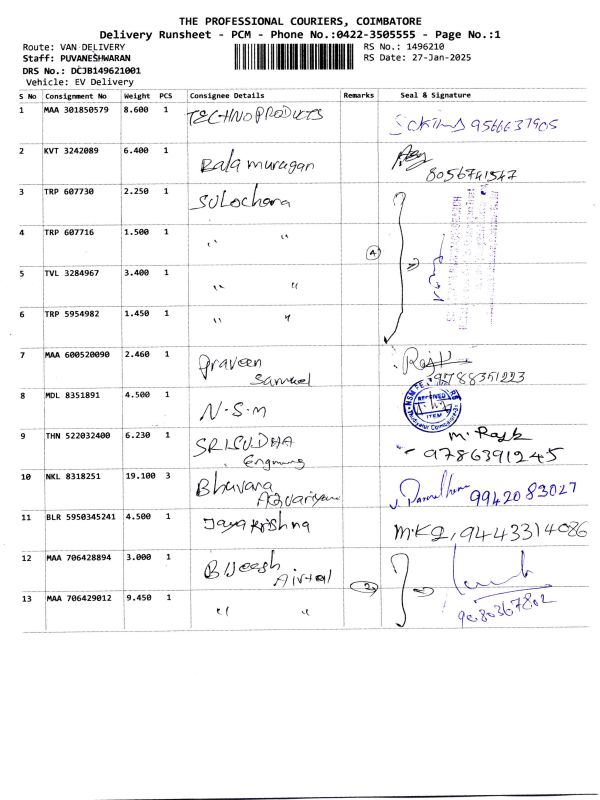 THE PROFESSIONAL COURIERS, COIMBATORE
Delivery Runsheet - PCM - Phone No.:0422-3505555 - Page No.:1
Route: VAN DELIVERY
RS No.: 1496210
Staff: PUVANESHWARAN
RS Date: 27-Jan-2025
DRS No.: DCJB149621001
Vehicle: EV Delivery
S No Consignment No Weight PCS Consignee Details Remarks Seal & Signature
1 MAA 301850579 8.600 1 TECHNOPRODUTS
9566637905
2 KVT 3242089 6.400 1 Bala murugan
8056741547
3 TRP 607730 2.250 1 SULochana
4 TRP 607716 1.500 1 " "
4
5 TVL 3284967 3.400 1 " "
6 TRP 5954982 1.450 1 " "
7 MAA 600520090 2.460 1 Praveen
Samuel
9788351223
8 MDL 8351891 4.500 1 N.S.M
RECEIVED
ITEM
9 THN 522032400 6.230 1 SRISUDHA
M. Rajk
9786391245
10 NKL 8318251 19.100 3 Bhuvana
9942083027
11 BLR 5950345241 4.500 1 Jayakrishna
M.K2, 9443314086
12 MAA 706428894 3.000 1 BIJeesh
Airtel
2
13 MAA 706429012 9.450 1 " "
9080367802